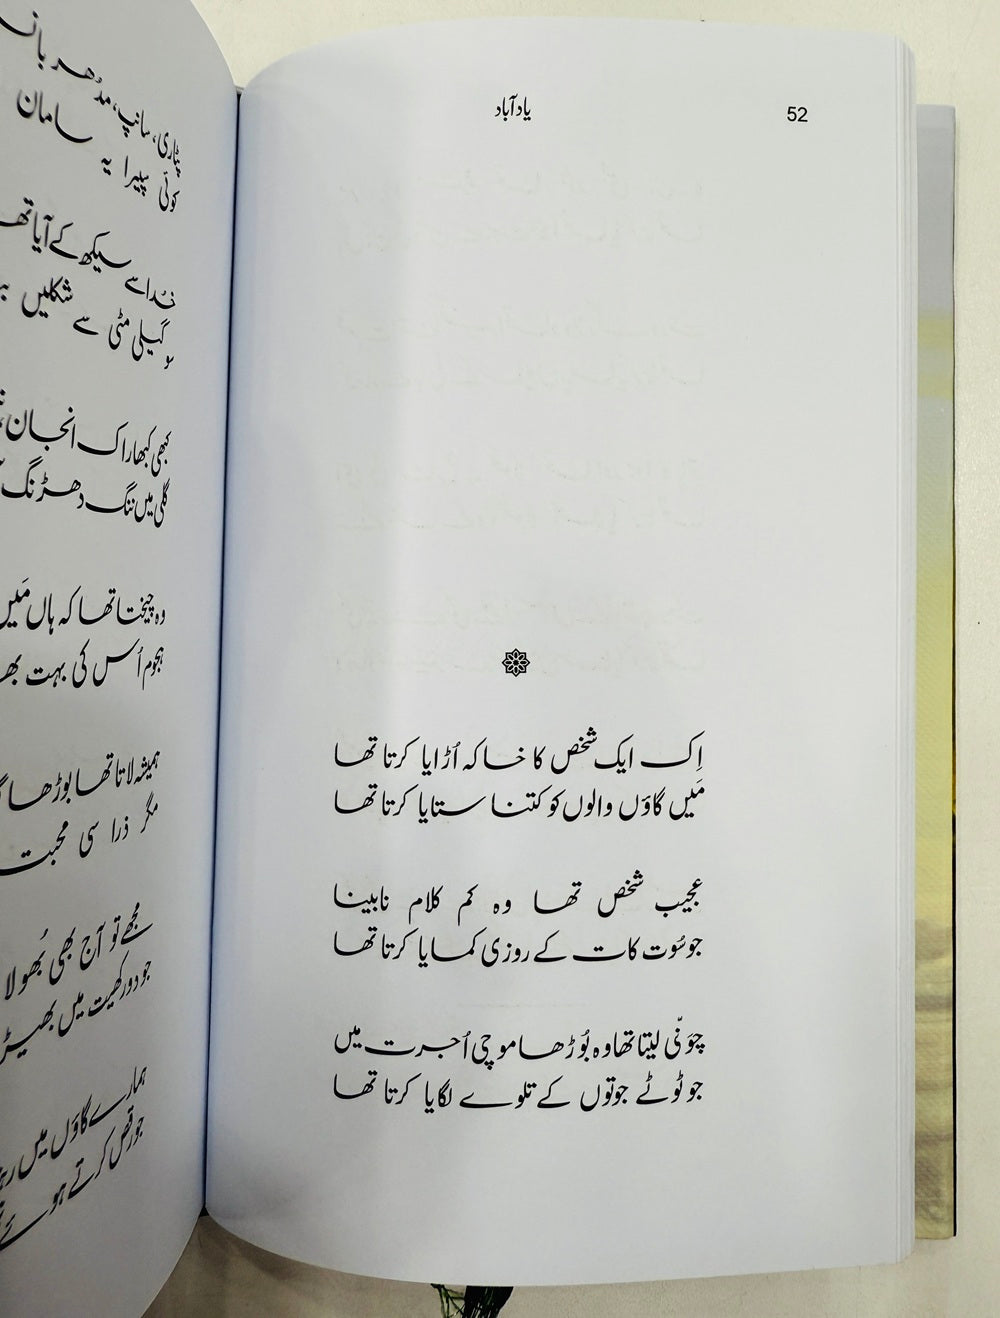 52
یاد آباد
اِک ایک شخص کا خاکہ اُڑایا کرتا تھا
مَیں گاؤں والوں کو کتنا ستایا کرتا تھا
عجیب شخص تھا وہ کم کلام نابینا
جو سُوت کات کے روزی کمایا کرتا تھا
چوَنّی لیتا تھا وہ بُوڑھا موچی اُجرت میں
جو ٹوٹے جوتوں کے تلوے لگایا کرتا تھا
پٹاری، سانپ، مدُھر
کوئی سپیرا یہ سامان
خُدا سے سیکھ کے آیا تھا
وَ گیلی مٹی سے شکلیں
کبھی کبھار اک انجان
گلی میں ننگ دھڑنگ
وہ چیختا تھا کہ ہاں مَیں
ہجوم اُس کی بہت
ہمیشہ لاتا تھا بوڑھا
مگر ذرا سی محبت
مجھے تو آج بھی بُھولا
جو دور کھیت میں
ہمارے گاؤں میں
جو رقص کرتے ہوئے